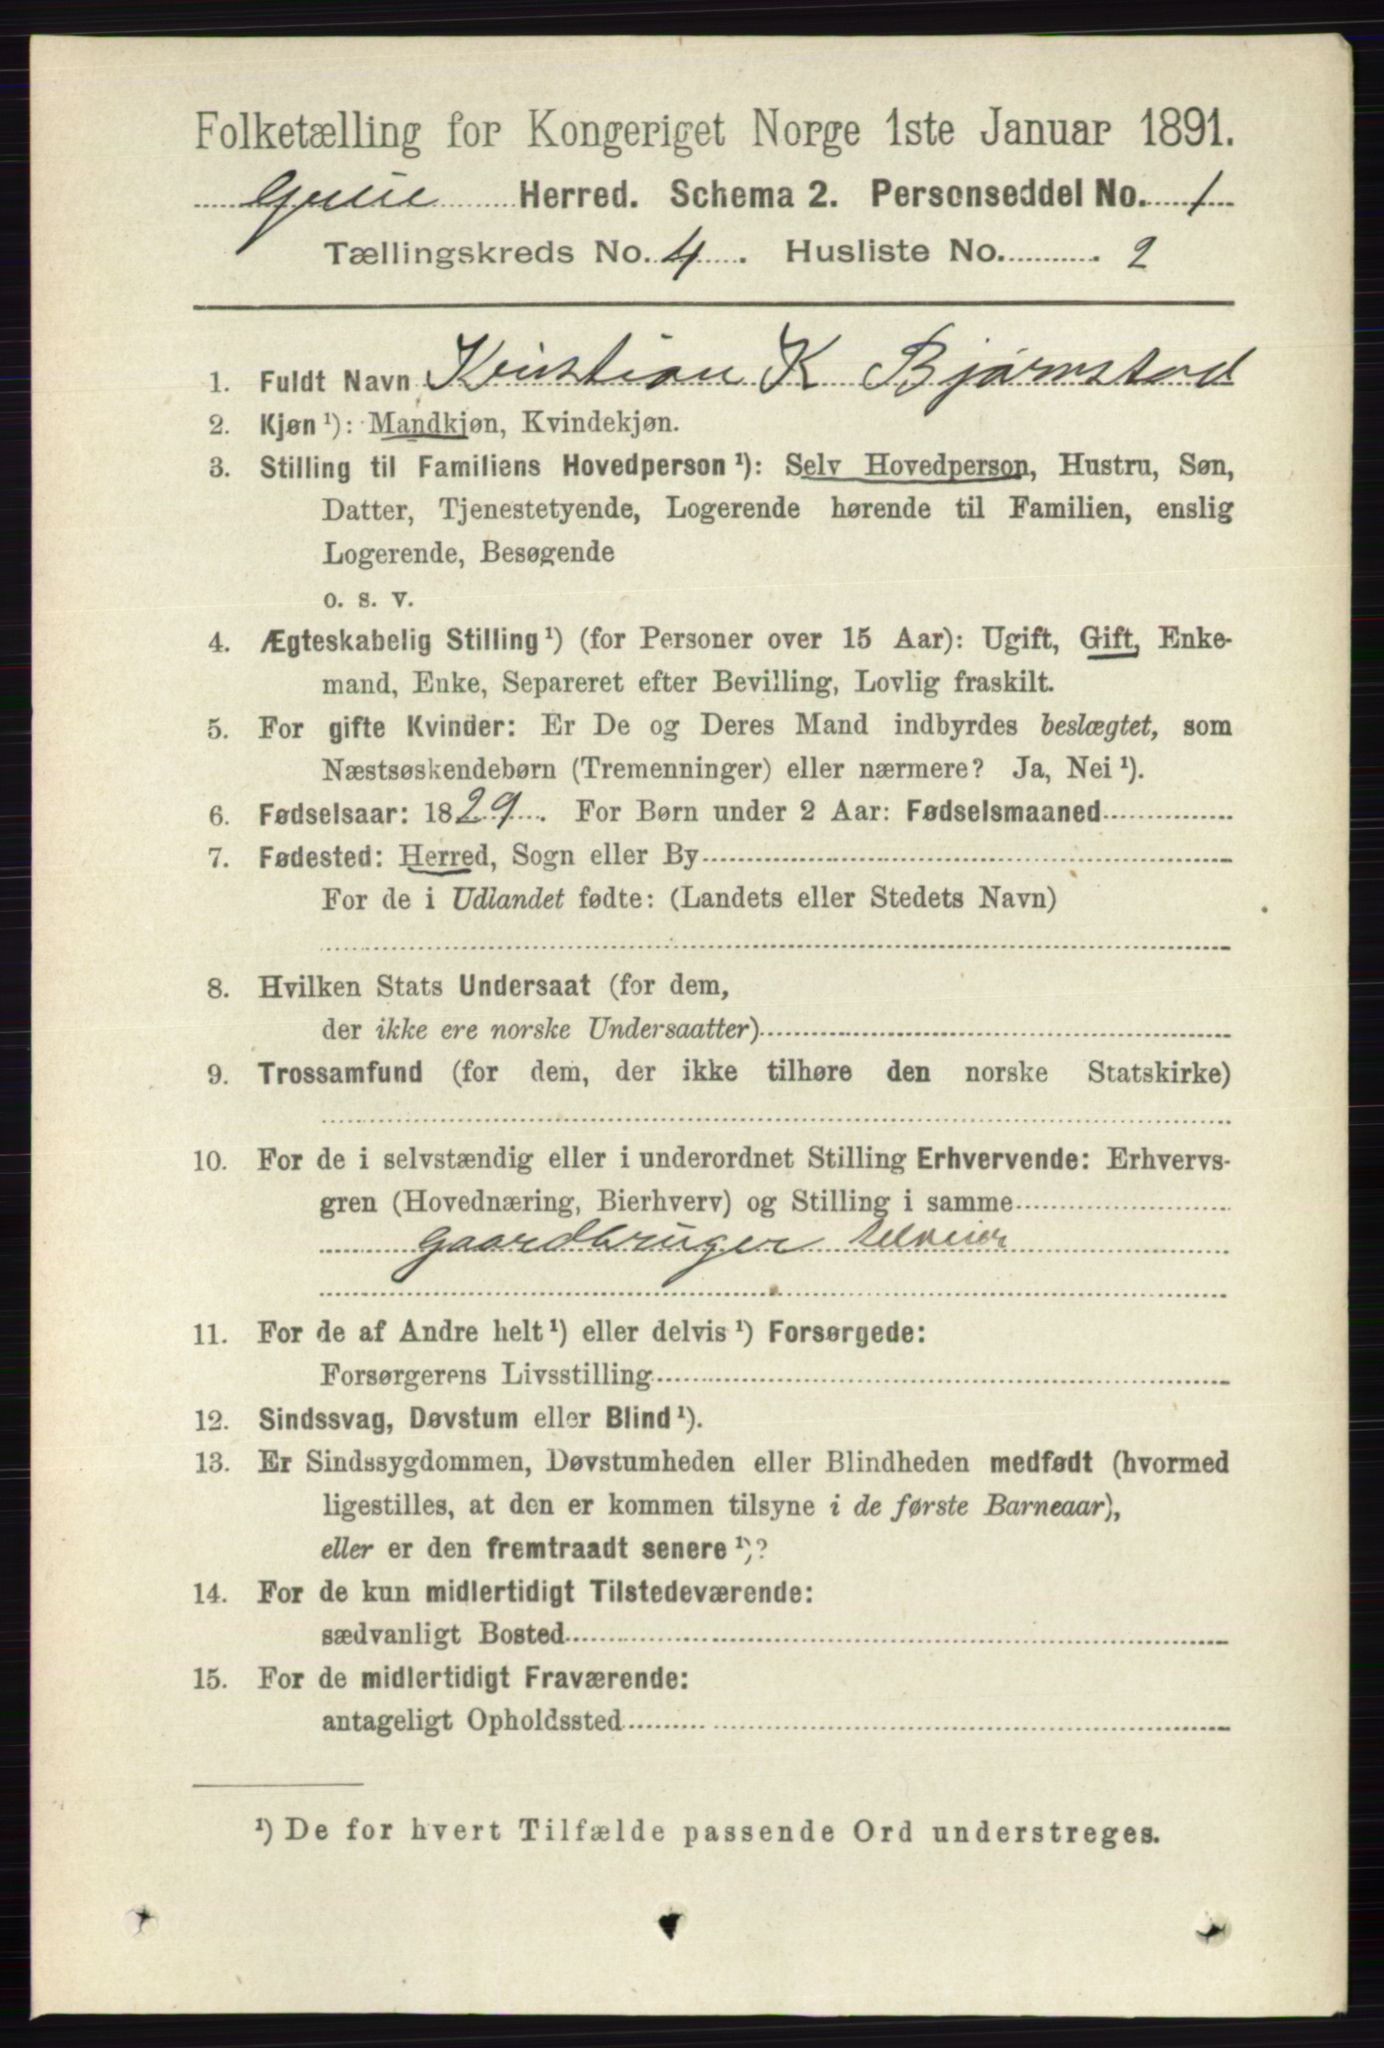 Folketælling for Kongeriget Norge 1ste Januar 1891.
Grue Herred. Schema 2. Personseddel No. 1
Tællingskreds No. 4. Husliste No. 2
1. Fuldt Navn Kristian K Bjørnstad
2. Kjøn¹): Mandkjøn, Kvindekjøn.
3. Stilling til Familiens Hovedperson¹): Selv Hovedperson, Hustru, Søn,
Datter, Tjenestetyende, Logerende hørende til Familien, enslig
Logerende, Besøgende
o. s. v.
4. Ægteskabelig Stilling¹) (for Personer over 15 Aar): Ugift, Gift, Enke-
mand, Enke, Separeret efter Bevilling, Lovlig fraskilt.
5. For gifte Kvinder: Er De og Deres Mand indbyrdes beslægtet, som
Næstsøskendebørn (Tremenninger) eller nærmere? Ja, Nei¹).
6. Fødselsaar: 1829. For Børn under 2 Aar: Fødselsmaaned
7. Fødested: Herred, Sogn eller By
For de i Udlandet fødte: (Landets eller Stedets Navn)
8. Hvilken Stats Undersaat (for dem,
der ikke ere norske Undersaatter)
9. Trossamfund (for dem, der ikke tilhøre den norske Statskirke)
10. For de i selvstændig eller i underordnet Stilling Erhvervende: Erhvervs-
gren (Hovednæring, Bierhverv) og Stilling i samme
Gaardbruger selveier
11. For de af Andre helt¹) eller delvis¹) Forsørgede:
Forsørgerens Livsstilling
12. Sindssvag, Døvstum eller Blind¹).
13. Er Sindssygdommen, Døvstumheden eller Blindheden medfødt (hvormed
ligestilles, at den er kommen tilsyne i de første Barneaar),
eller er den fremtraadt senere¹)?
14. For de kun midlertidigt Tilstedeværende:
sædvanligt Bosted
15. For de midlertidigt Fraværende:
antageligt Opholdssted
¹) De for hvert Tilfælde passende Ord understreges.